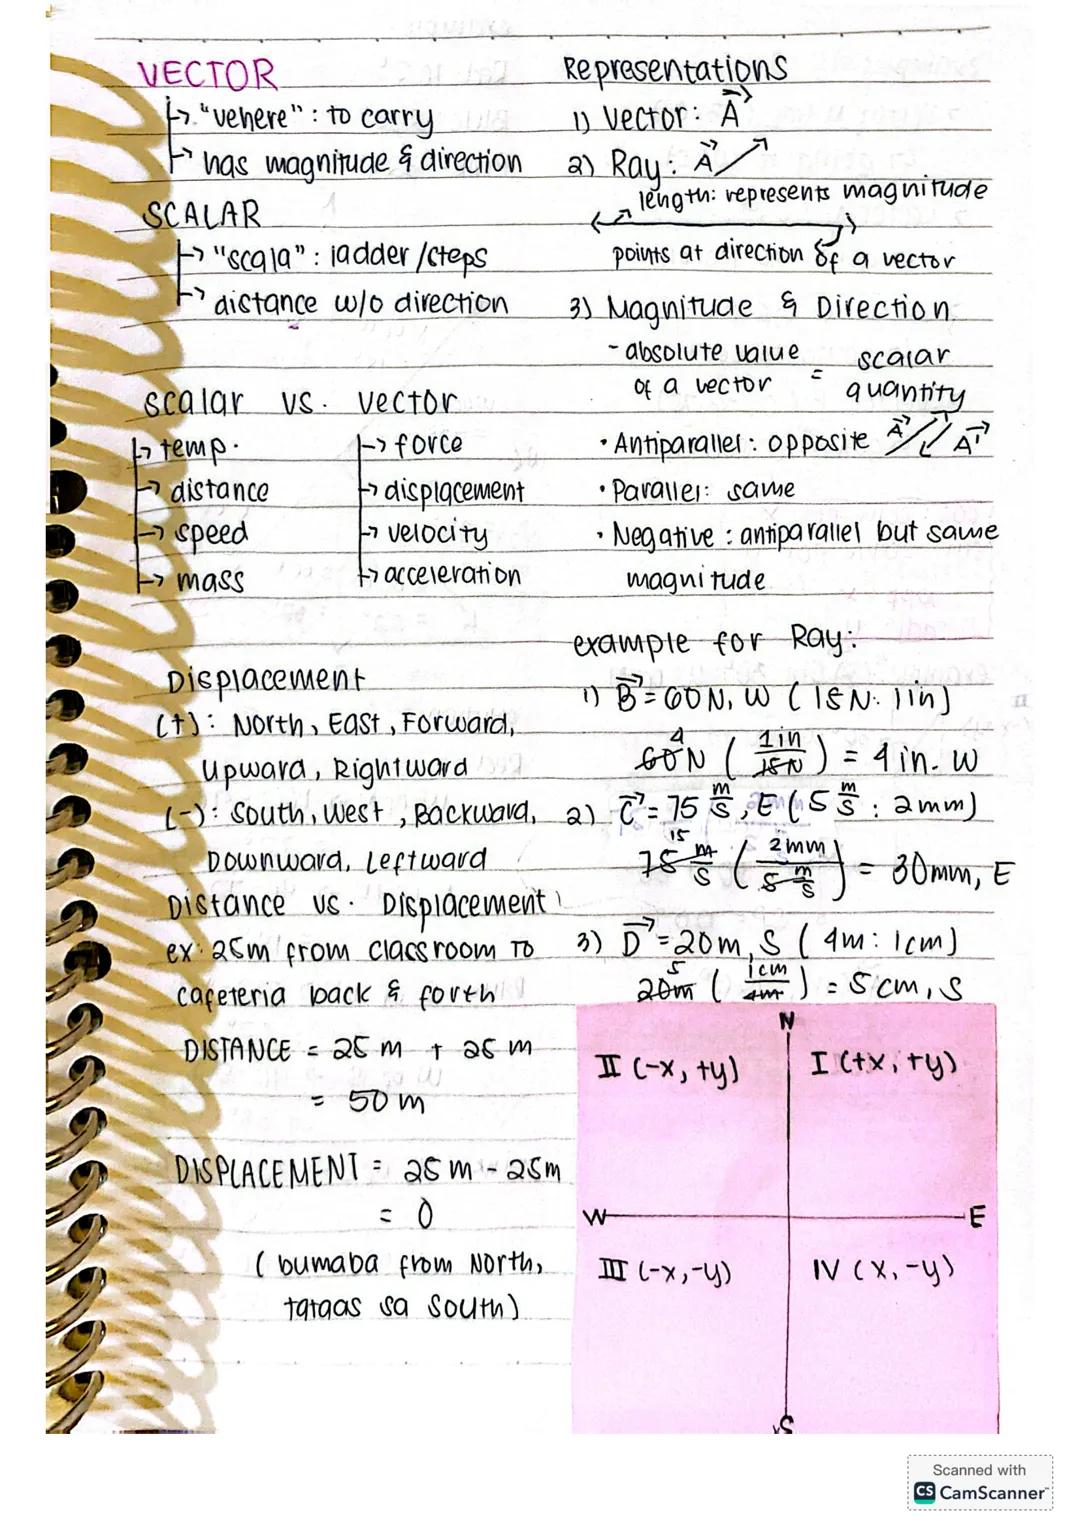 VECTOR
"vehere" : to carry
has magnitude & direction
SCALAR
"scala" : ladder/steps
distance w/o direction
scalar vs. vector
temp.
distance
speed
mass
force
displacement
velocity
acceleration
Displacement
(+): North, East, Forward,
Upward, Rightward
(-): South, West, Backward,
Downward, Leftward
Distance vs. Displacement
ex: 25m from classroom to
cafeteria back & forth
DISTANCE = 25 m + 25 m
= 50 m
DISPLACEMENT = 25 m - 25m
= 0
( bumaba from North,
tataas sa South)
Representations
1) Vector: A
2) Ray: A
length: represents magnitude
points at direction of a vector
3) Magnitude & Direction
- absolute value = scalar
of a vector quantity
• Antiparallel: opposite A A
• Parallel: same
• Negative : antiparallel but same
magnitude
example for Ray:
1) B = 60N, W ( 15N: 1in)
4
60N ( 1in / 15N ) = 4 in. W
2) C = 75 m/s, E ( 5 m/s : 2mm)
15
75 m/s ( 2mm / 5 m/s ) = 30mm, E
3) D = 20m, S ( 4m: 1cm)
5
20m ( 1cm / 4m ) = 5 cm, S
N
II (-x, +y) I (+x, +y)
W E
III (-x, -y) IV (x, -y)
S
Scanned with
CS CamScanner